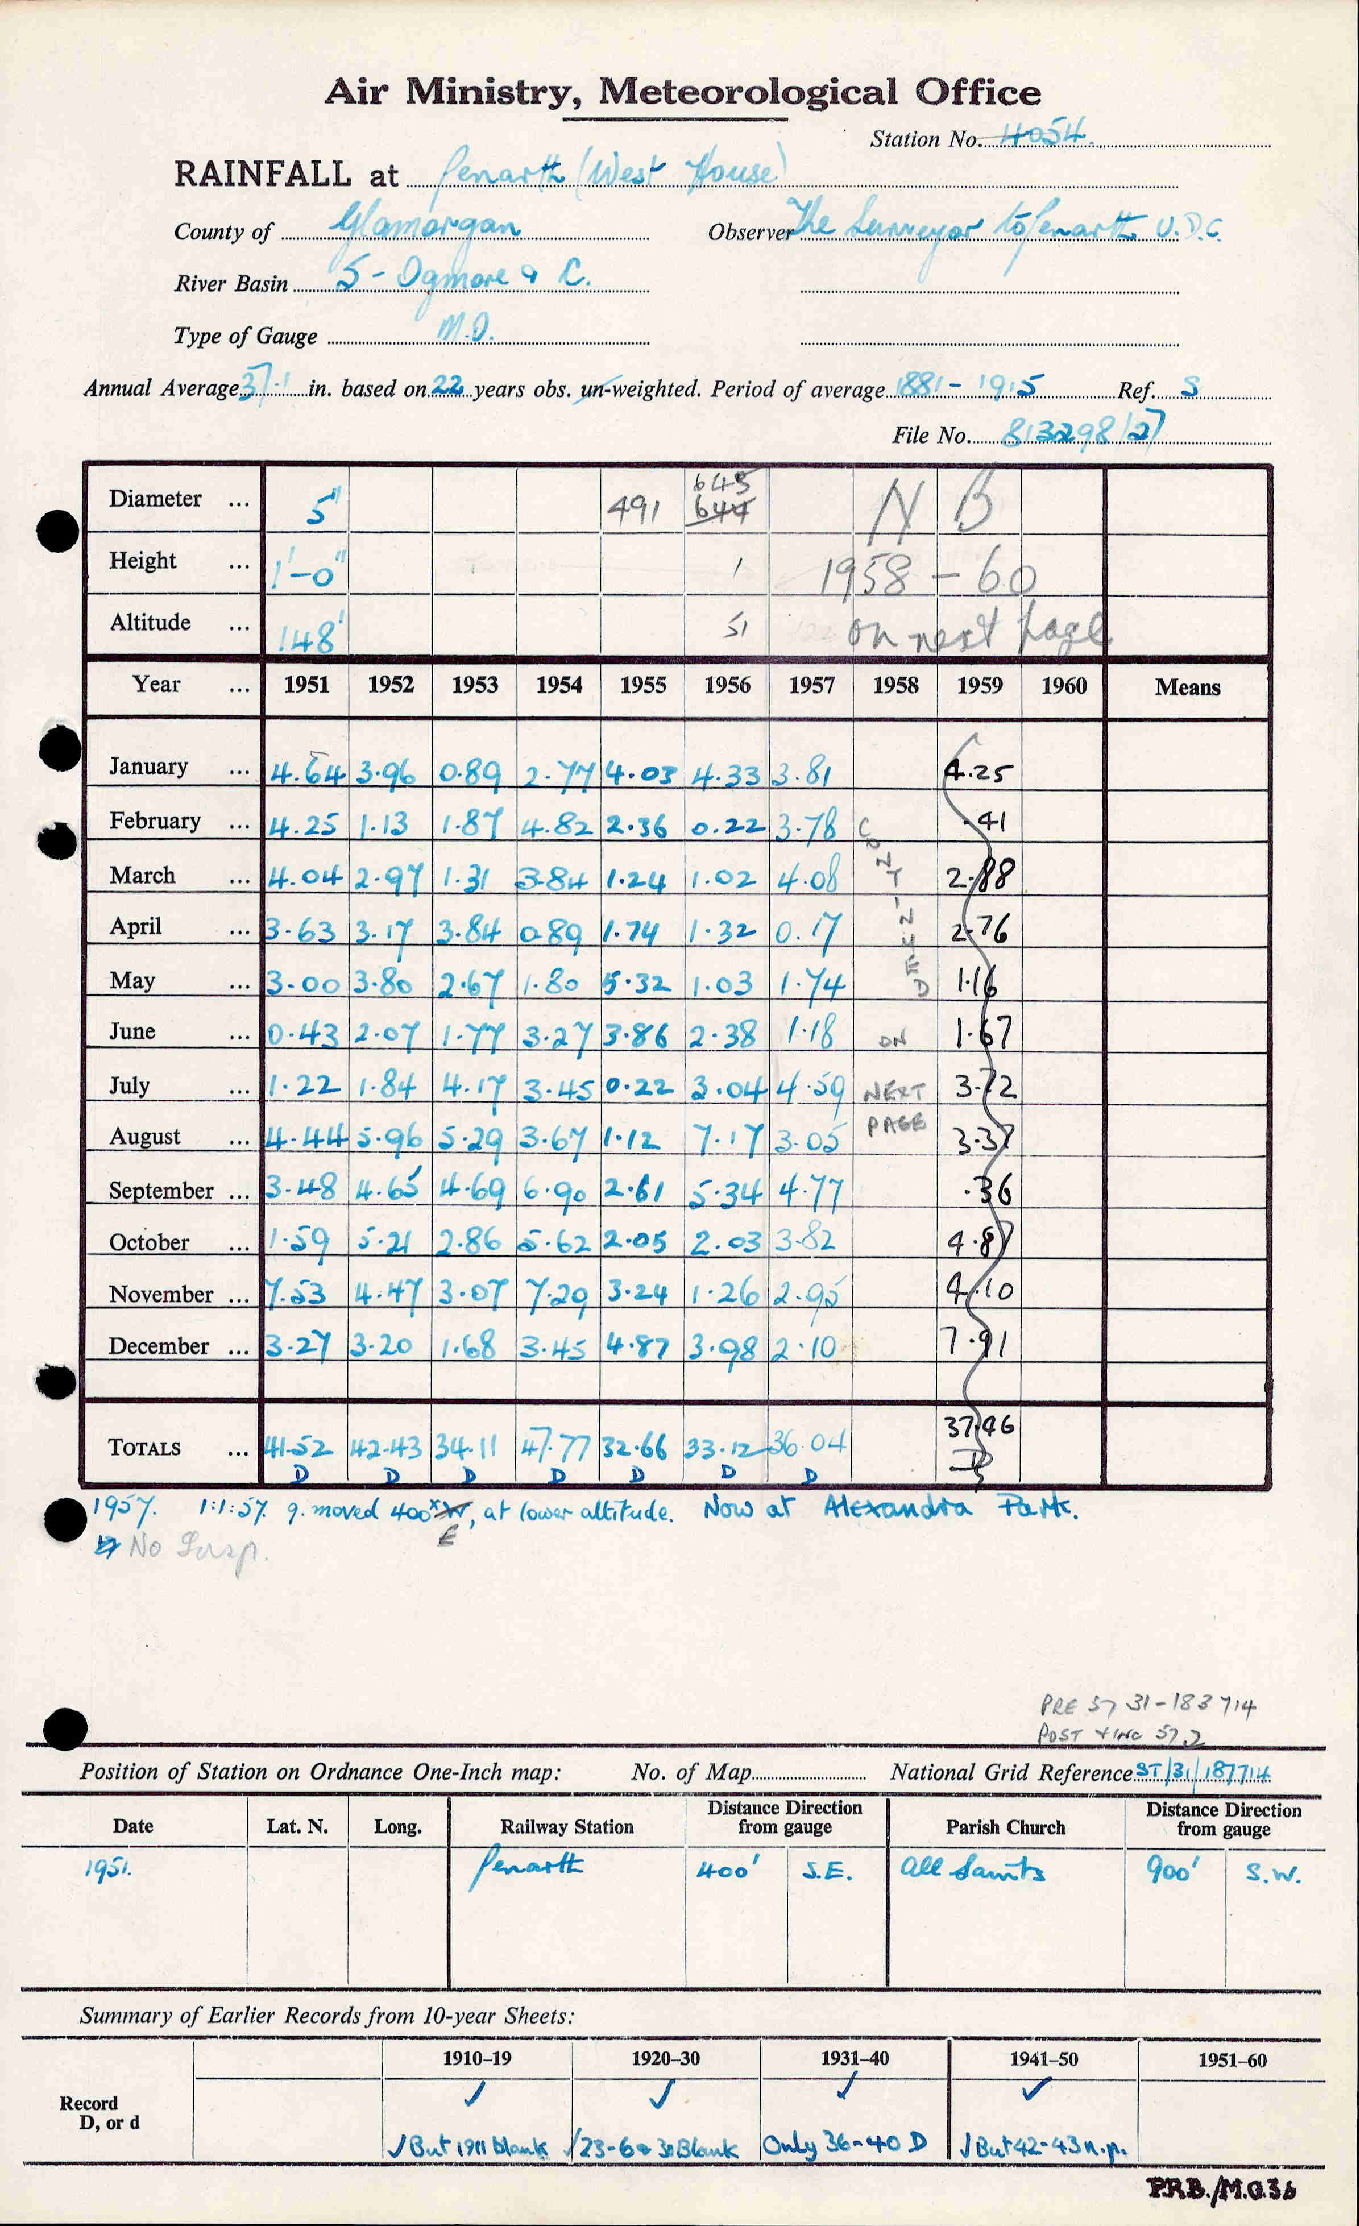 Air Ministry, Meteorological Office
Station No. 4054.
RAINFALL at Penarth (West House)
County of Glamorgan Observer The Surveyor to Penarth U.D.C.
River Basin 5 - Ogmore & C.
Type of Gauge M.O.
Annual Average 37.1 in. based on 22 years obs. un-weighted. Period of average 1881 - 1915 Ref. S
File No. 813298/27
Diameter ... 5" 491 645 644 N B
Height ... 1'-0" 1 1958 - 60
Altitude ... 148' 51 on next page
Year ... 1951 1952 1953 1954 1955 1956 1957 1958 1959 1960 Means
January ... 4.64 3.96 0.89 2.77 4.03 4.33 3.81 4.25
February ... 4.25 1.13 1.87 4.82 2.36 0.22 3.78 .41
March ... 4.04 2.97 1.31 3.84 1.24 1.02 4.08 2.88
April ... 3.63 3.17 3.84 0.89 1.74 1.32 0.17 2.76
May ... 3.00 3.80 2.67 1.80 5.32 1.03 1.74 1.16
June ... 0.43 2.07 1.77 3.27 3.86 2.38 1.18 ON 1.67
July ... 1.22 1.84 4.17 3.45 0.22 3.04 4.59 NEXT 3.72
August ... 4.44 5.96 5.29 3.67 1.12 7.17 3.05 PAGE 3.37
September ... 3.48 4.65 4.69 6.90 2.61 5.34 4.77 .36
October ... 1.59 5.21 2.86 5.62 2.05 2.03 3.82 4.87
November ... 7.53 4.47 3.07 7.29 3.24 1.26 2.95 4.10
December ... 3.27 3.20 1.68 3.45 4.87 3.98 2.10 7.91
TOTALS ... 41.52 42.43 34.11 47.77 32.66 33.12 36.04 37.96
D D D D D D D D
1957. 1:1:57. g. moved 400x W, at lower altitude. Now at Alexandra Park.
E
No Insp.
PRE 57 31-183714
POST & INC 57
Position of Station on Ordnance One-Inch map: No. of Map National Grid Reference ST/31/187714
Date Lat. N. Long. Railway Station Distance Direction from gauge Parish Church Distance Direction from gauge
1951. Penarth 400' S.E. All Saints 900' S.W.
Summary of Earlier Records from 10-year Sheets:
1910–19 1920–30 1931–40 1941–50 1951–60
Record D, or d ✓ ✓ ✓ ✓
✓But 1911 blank ✓23-6 & 30 Blank Only 36-40 D ✓But 42-43 n.p.
P.R.B./M.O.36